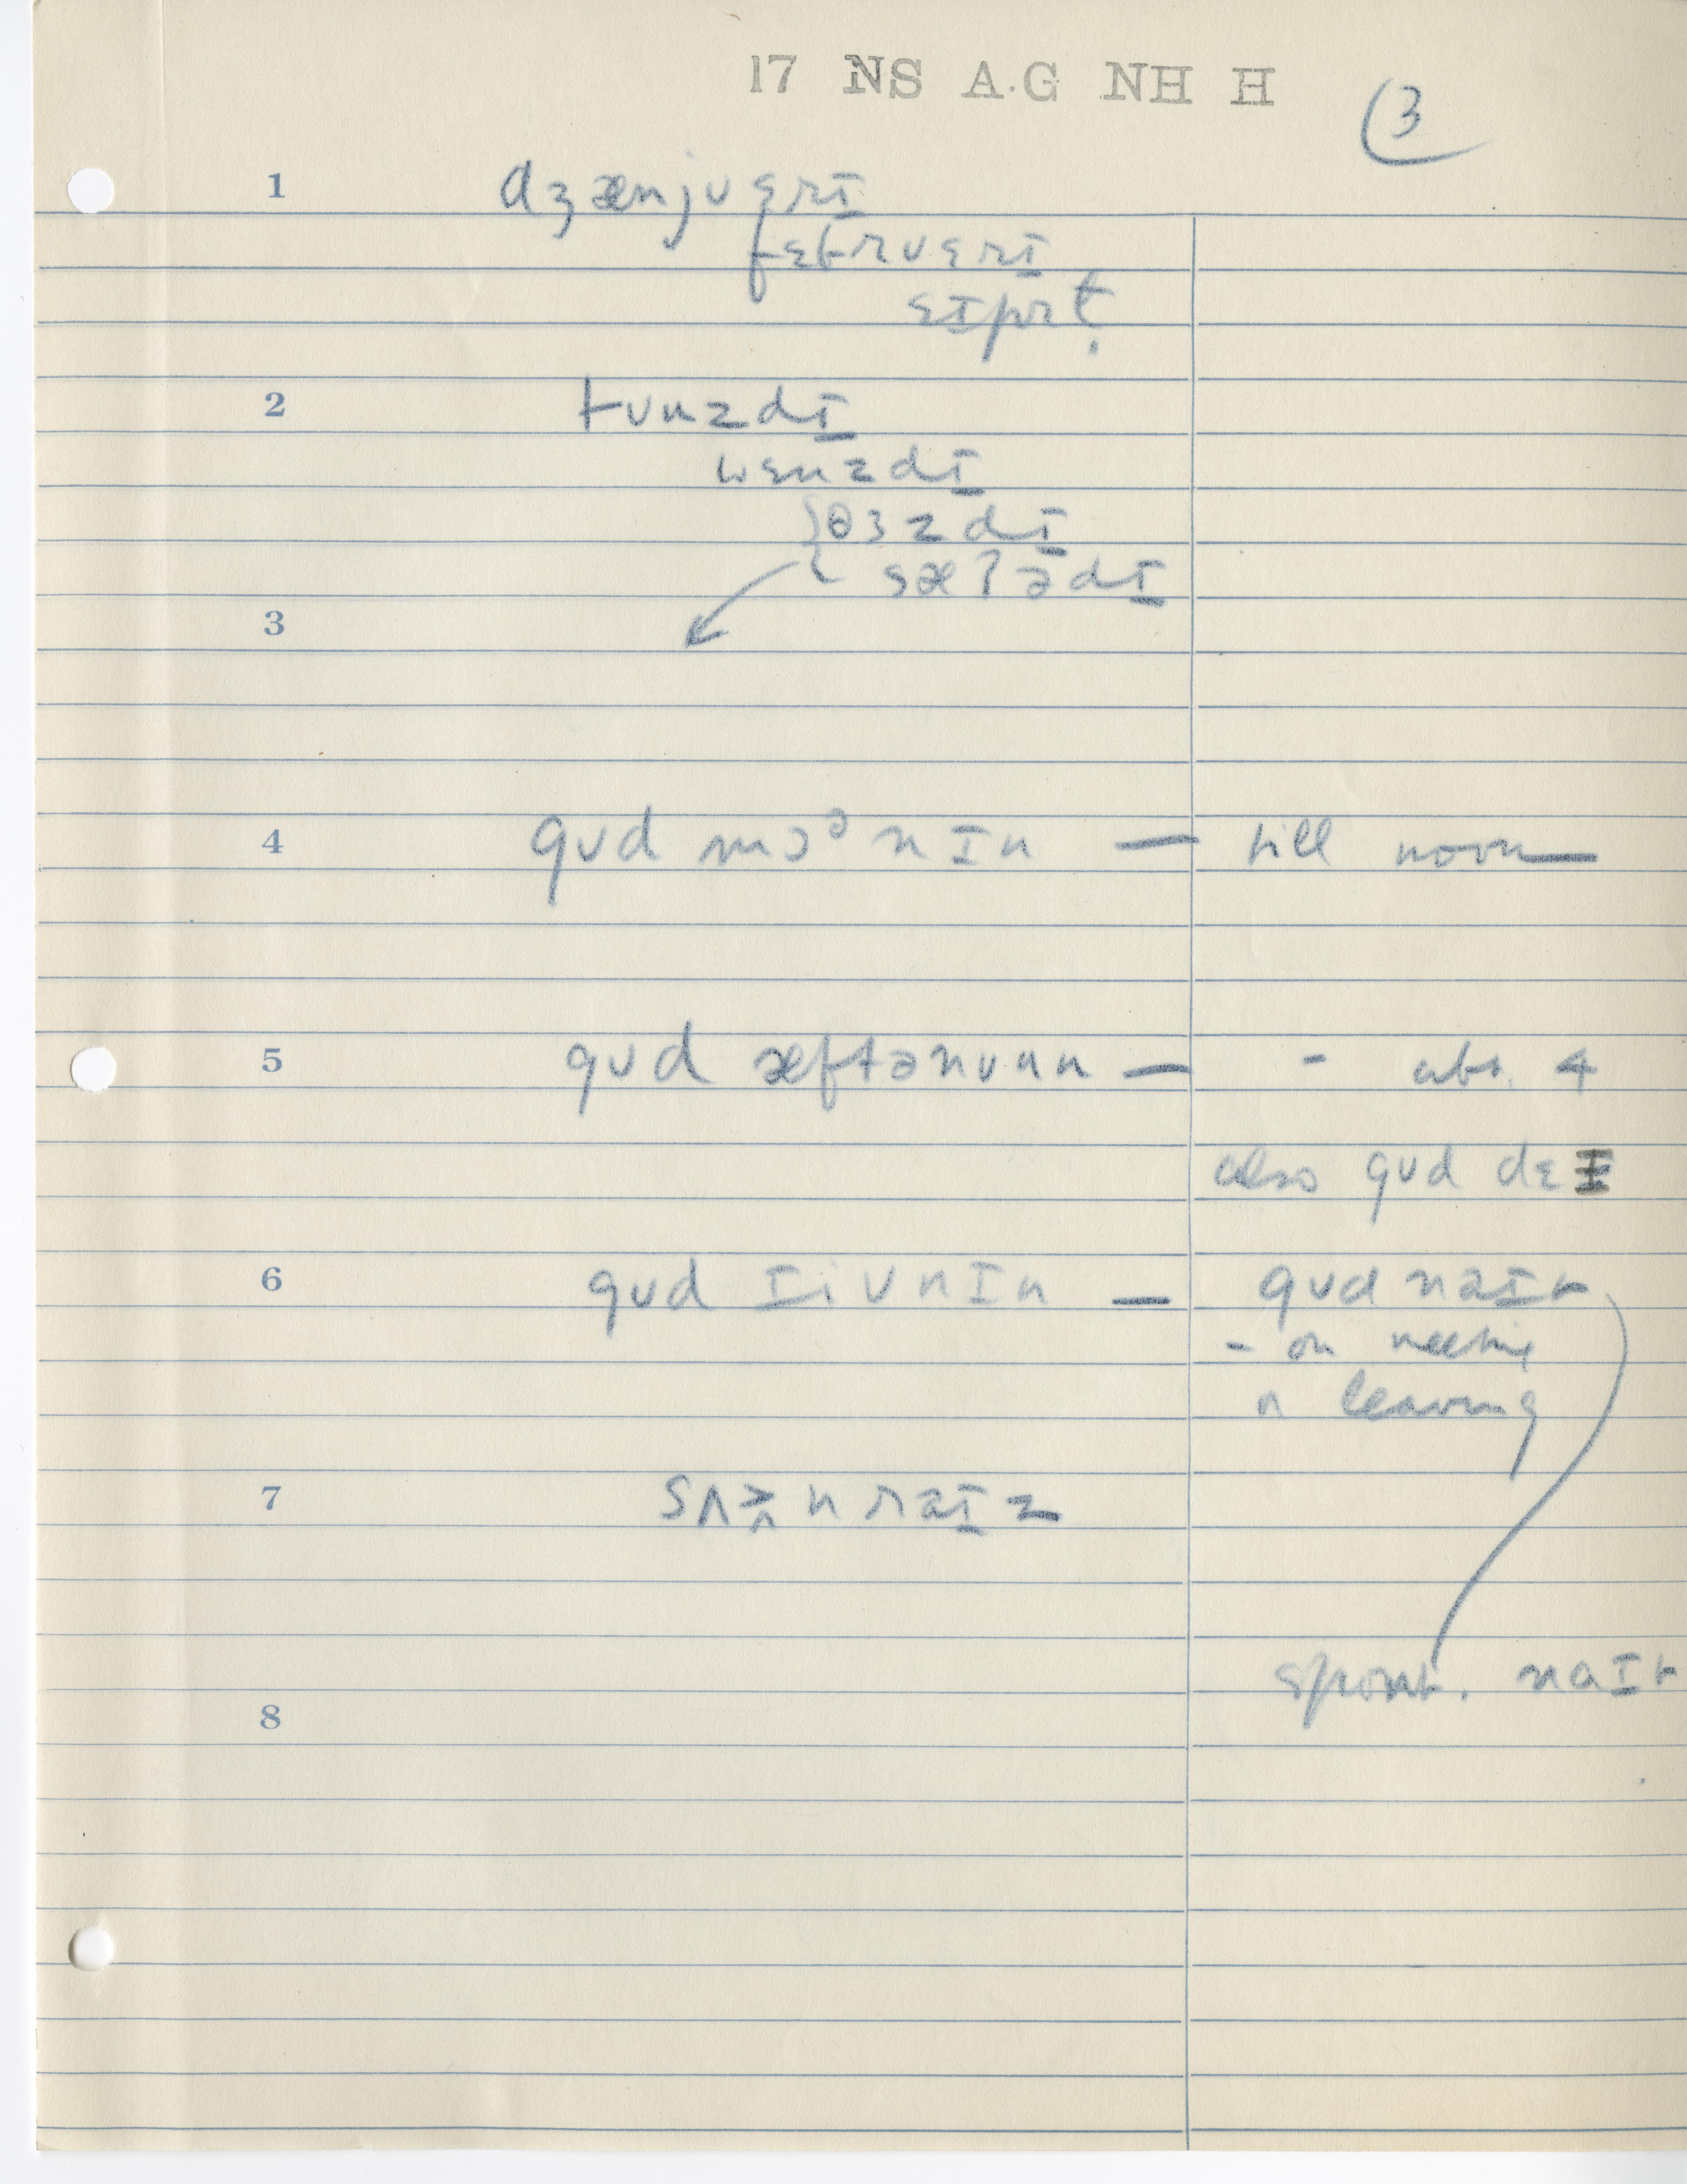 17 NS A.G NH H
3
1 dʒænjʊɛrɪ
fɛbrʊɛrɪ
ɛɪprt̬
2 tʊuzdɪ
wɛnzdɪ
θɜzdɪ
sæʔədɪ
3
4 gʊd mɔᵊnɪn — till noon —
5 gʊd æftənʊun — - abt. 4
also gʊd dɛɪ
6 gʊd ɪivnɪn — gʊd naɪt
- on meeting
or leaving
7 sʌnraɪz
spont. naɪt
8